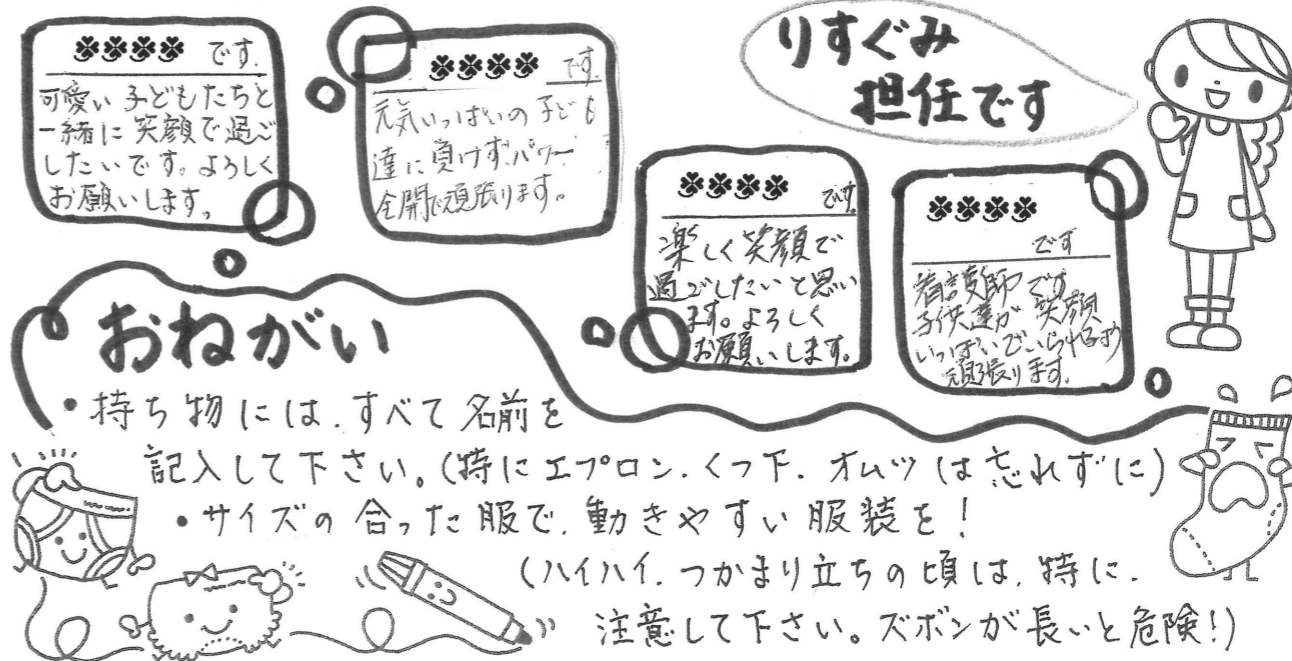 りすぐみ
担任です
です.
可愛い子どもたちと
一緒に笑顔で過ご
したいです。よろしく
お願いします。
です
元気いっぱいの子ども
達に負けずパワー
全開で頑張ります。
です。
楽しく笑顔で
過ごしたいと思い
ます。よろしく
お願いします。
です
看護師です。
子供達が笑顔
いっぱいでいられるよう
頑張ります。
おねがい
・持ち物には.すべて名前を
記入して下さい。(特にエプロン.くつ下.オムツは忘れずに)
・サイズの合った服で.動きやすい服装を!
(ハイハイ.つかまり立ちの頃は.特に.
注意して下さい。ズボンが長いと危険!)